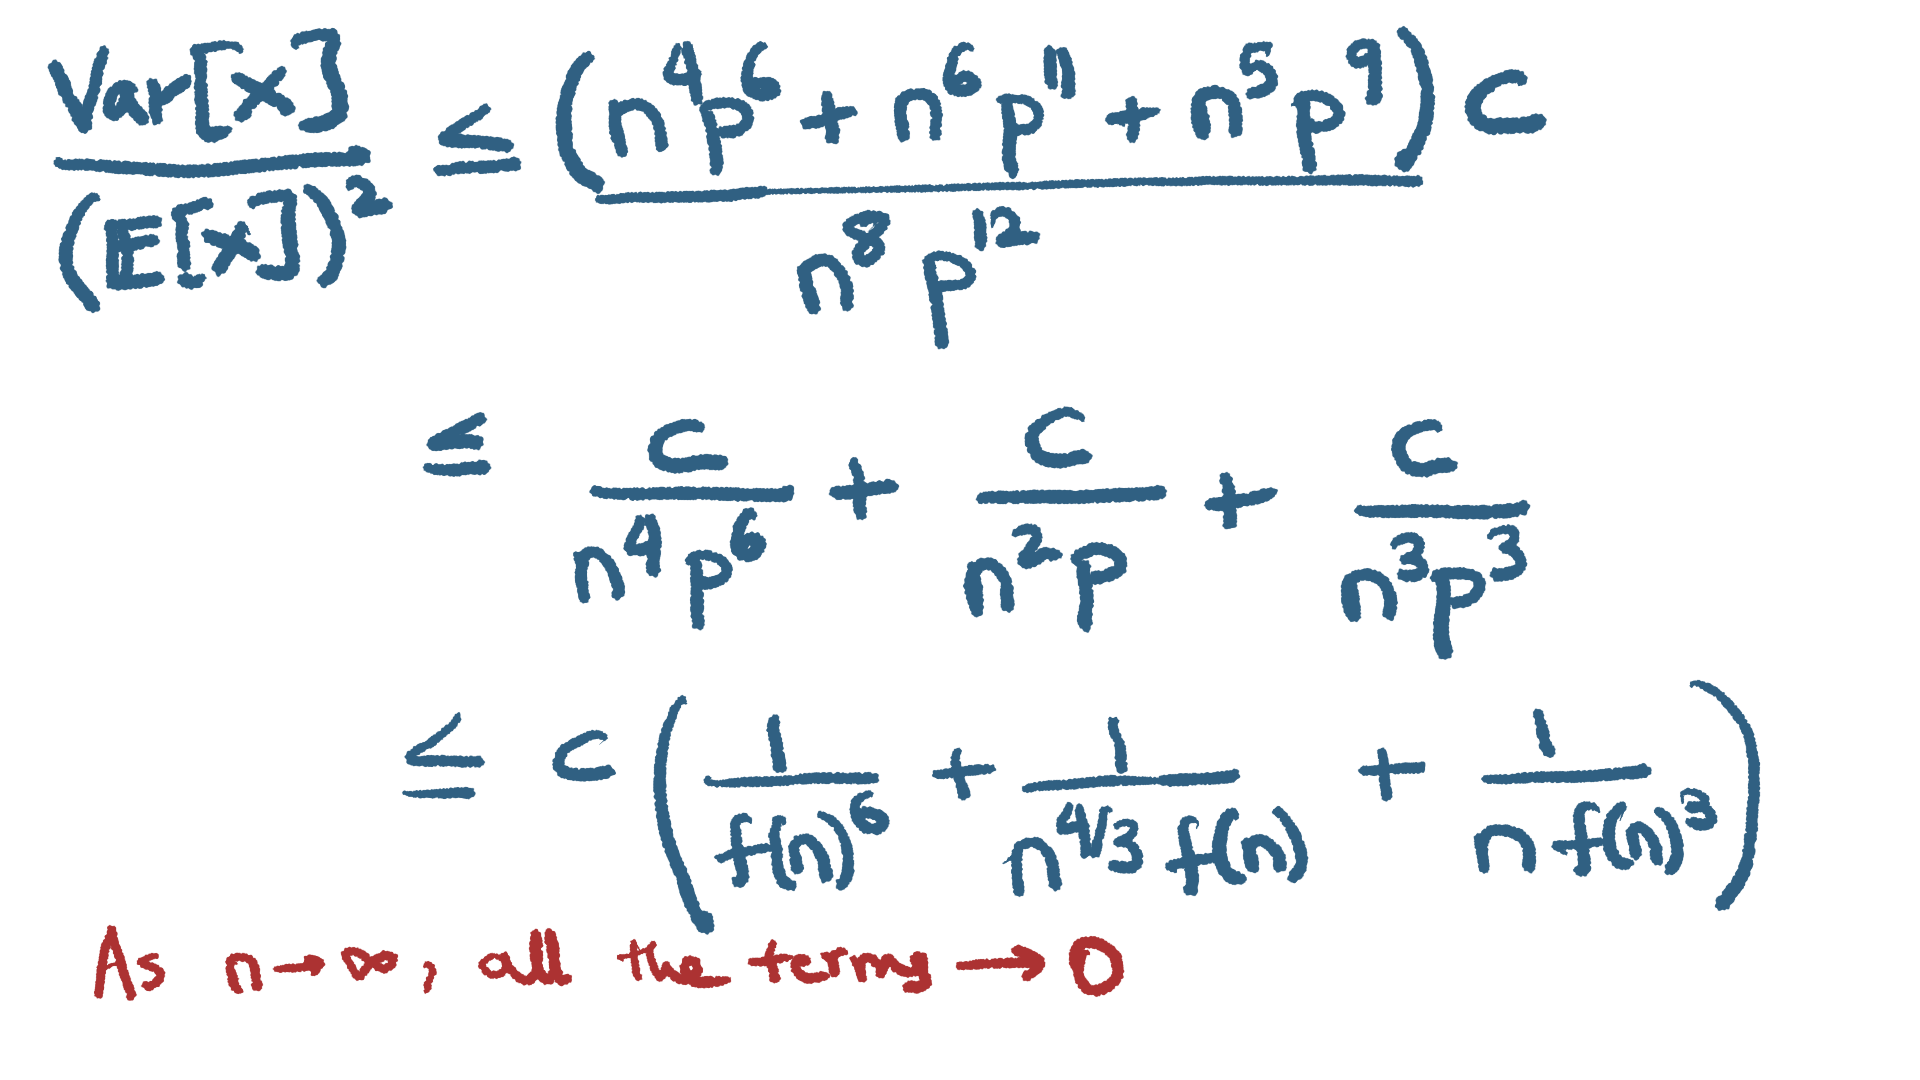 Var[x] / (E[x])² ≤ (n⁴p⁶ + n⁶p¹¹ + n⁵p⁹) C / n⁸p¹²
≤ C / n⁴p⁶ + C / n²p + C / n³p³
≤ C ( 1 / f(n)⁶ + 1 / n^{4/3} f(n) + 1 / n f(n)³ )
As n → ∞, all the terms → 0